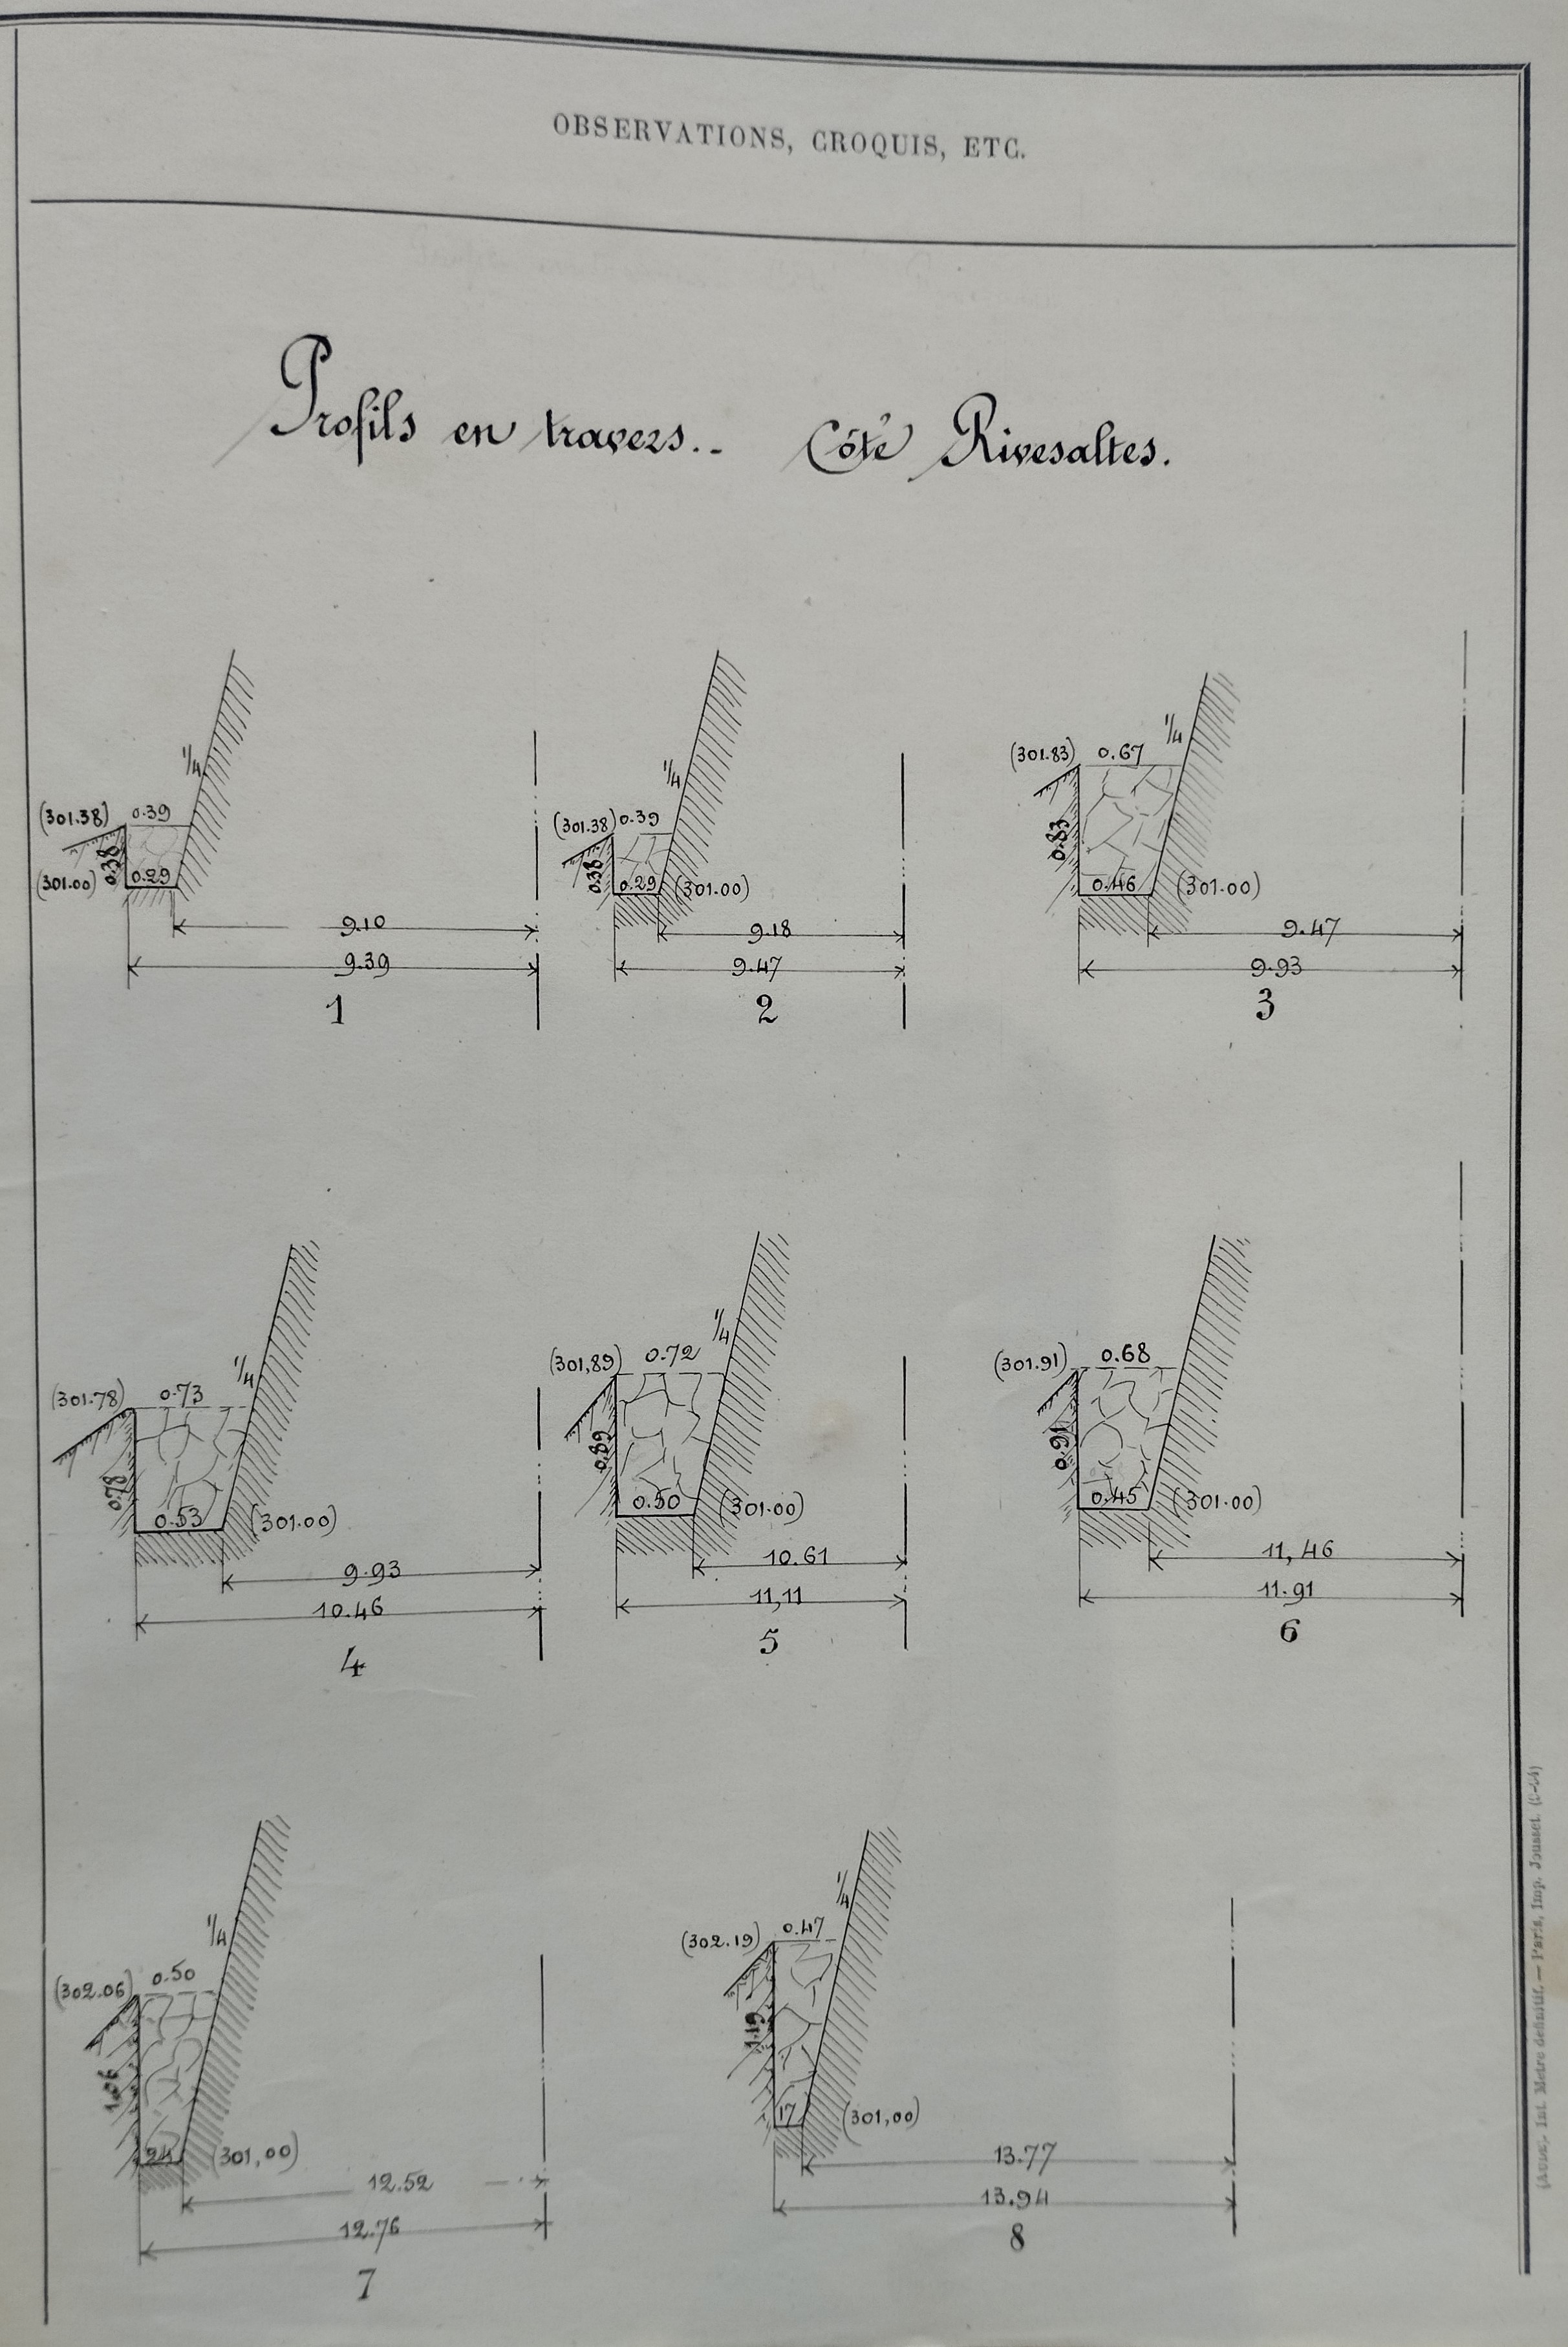 OBSERVATIONS, CROQUIS, ETC.
Profils en travers.. Côté Rivesaltes.
1/4
(301.38) 0.39
0.38
(301.00) 0.29
9.10
9.39
1
1/4
(301.38) 0.39
0.38
0.29 (301.00)
9.18
9.47
2
1/4
(301.83) 0.67
0.83
0.46 (301.00)
9.47
9.93
3
1/4
(301.78) 0.73
0.78
0.53 (301.00)
9.93
10.46
4
1/4
(301,89) 0.72
0.89
0.50 (301.00)
10.61
11,11
5
(301.91) 0.68
0.91
0.45 (301.00)
11,46
11.91
6
1/4
(302.06) 0.50
1.06
24 (301,00)
12.52
12.76
7
1/4
(302.19) 0.47
1.19
17 (301,00)
13.77
13.94
8
Int. Metre definitif. — Paris, Imp. Jousset.